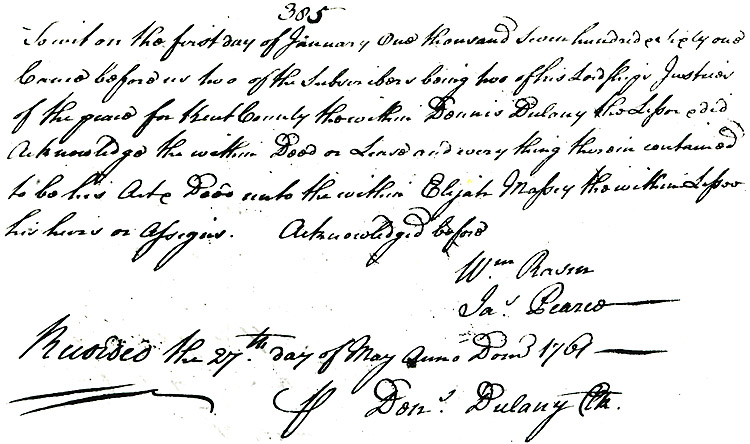 385
Towit on the first day of January One thousand Seven hundred & sixty one
Came before us two of the Subscribers being two of his Lordships Justices
of the peace for Kent County the within Dennis Dulany the Lessor & did
Acknowledge the within Deed or Lease and every thing therein contained
to be his Act & Deed unto the within Elijah Massey the within Lessee
his heirs or Assigns. Acknowledged before
Wm Rasin
Jas Pearce
Recorded the 27.th day of May Anno Domi 1761
Dens. Dulany Clk.